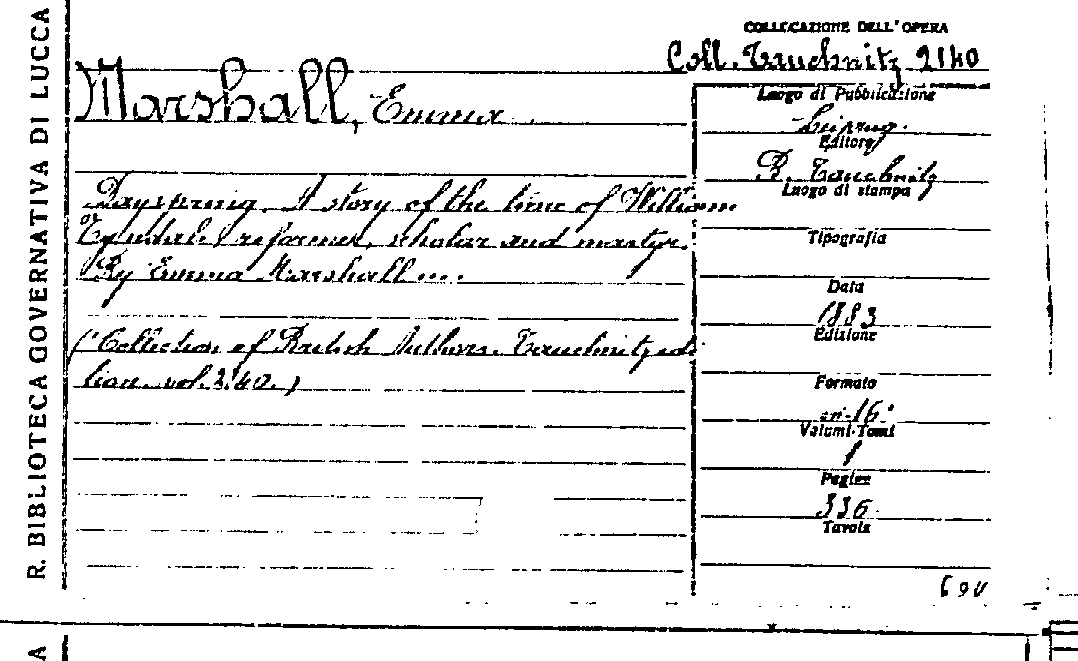 R. BIBLIOTECA GOVERNATIVA DI LUCCA
COLLOCAZIONE DELL'OPERA
Coll. Tauchnitz 2140
Marshall, Emma
Dayspring. A story of the time of William
Tyndale, reformer, scholar and martyr.
By Emma Marshall....
(Collection of British Authors. Tauchnitz edi
tion. vol. 2140.)
Luogo di Pubblicazione
Leipzig.
Editore
B. Tauchnitz
Luogo di stampa
Tipografia
Data
1883
Edizione
Formato
in-16°
Volumi-Tomi
1
Pagine
336
Tavole
A